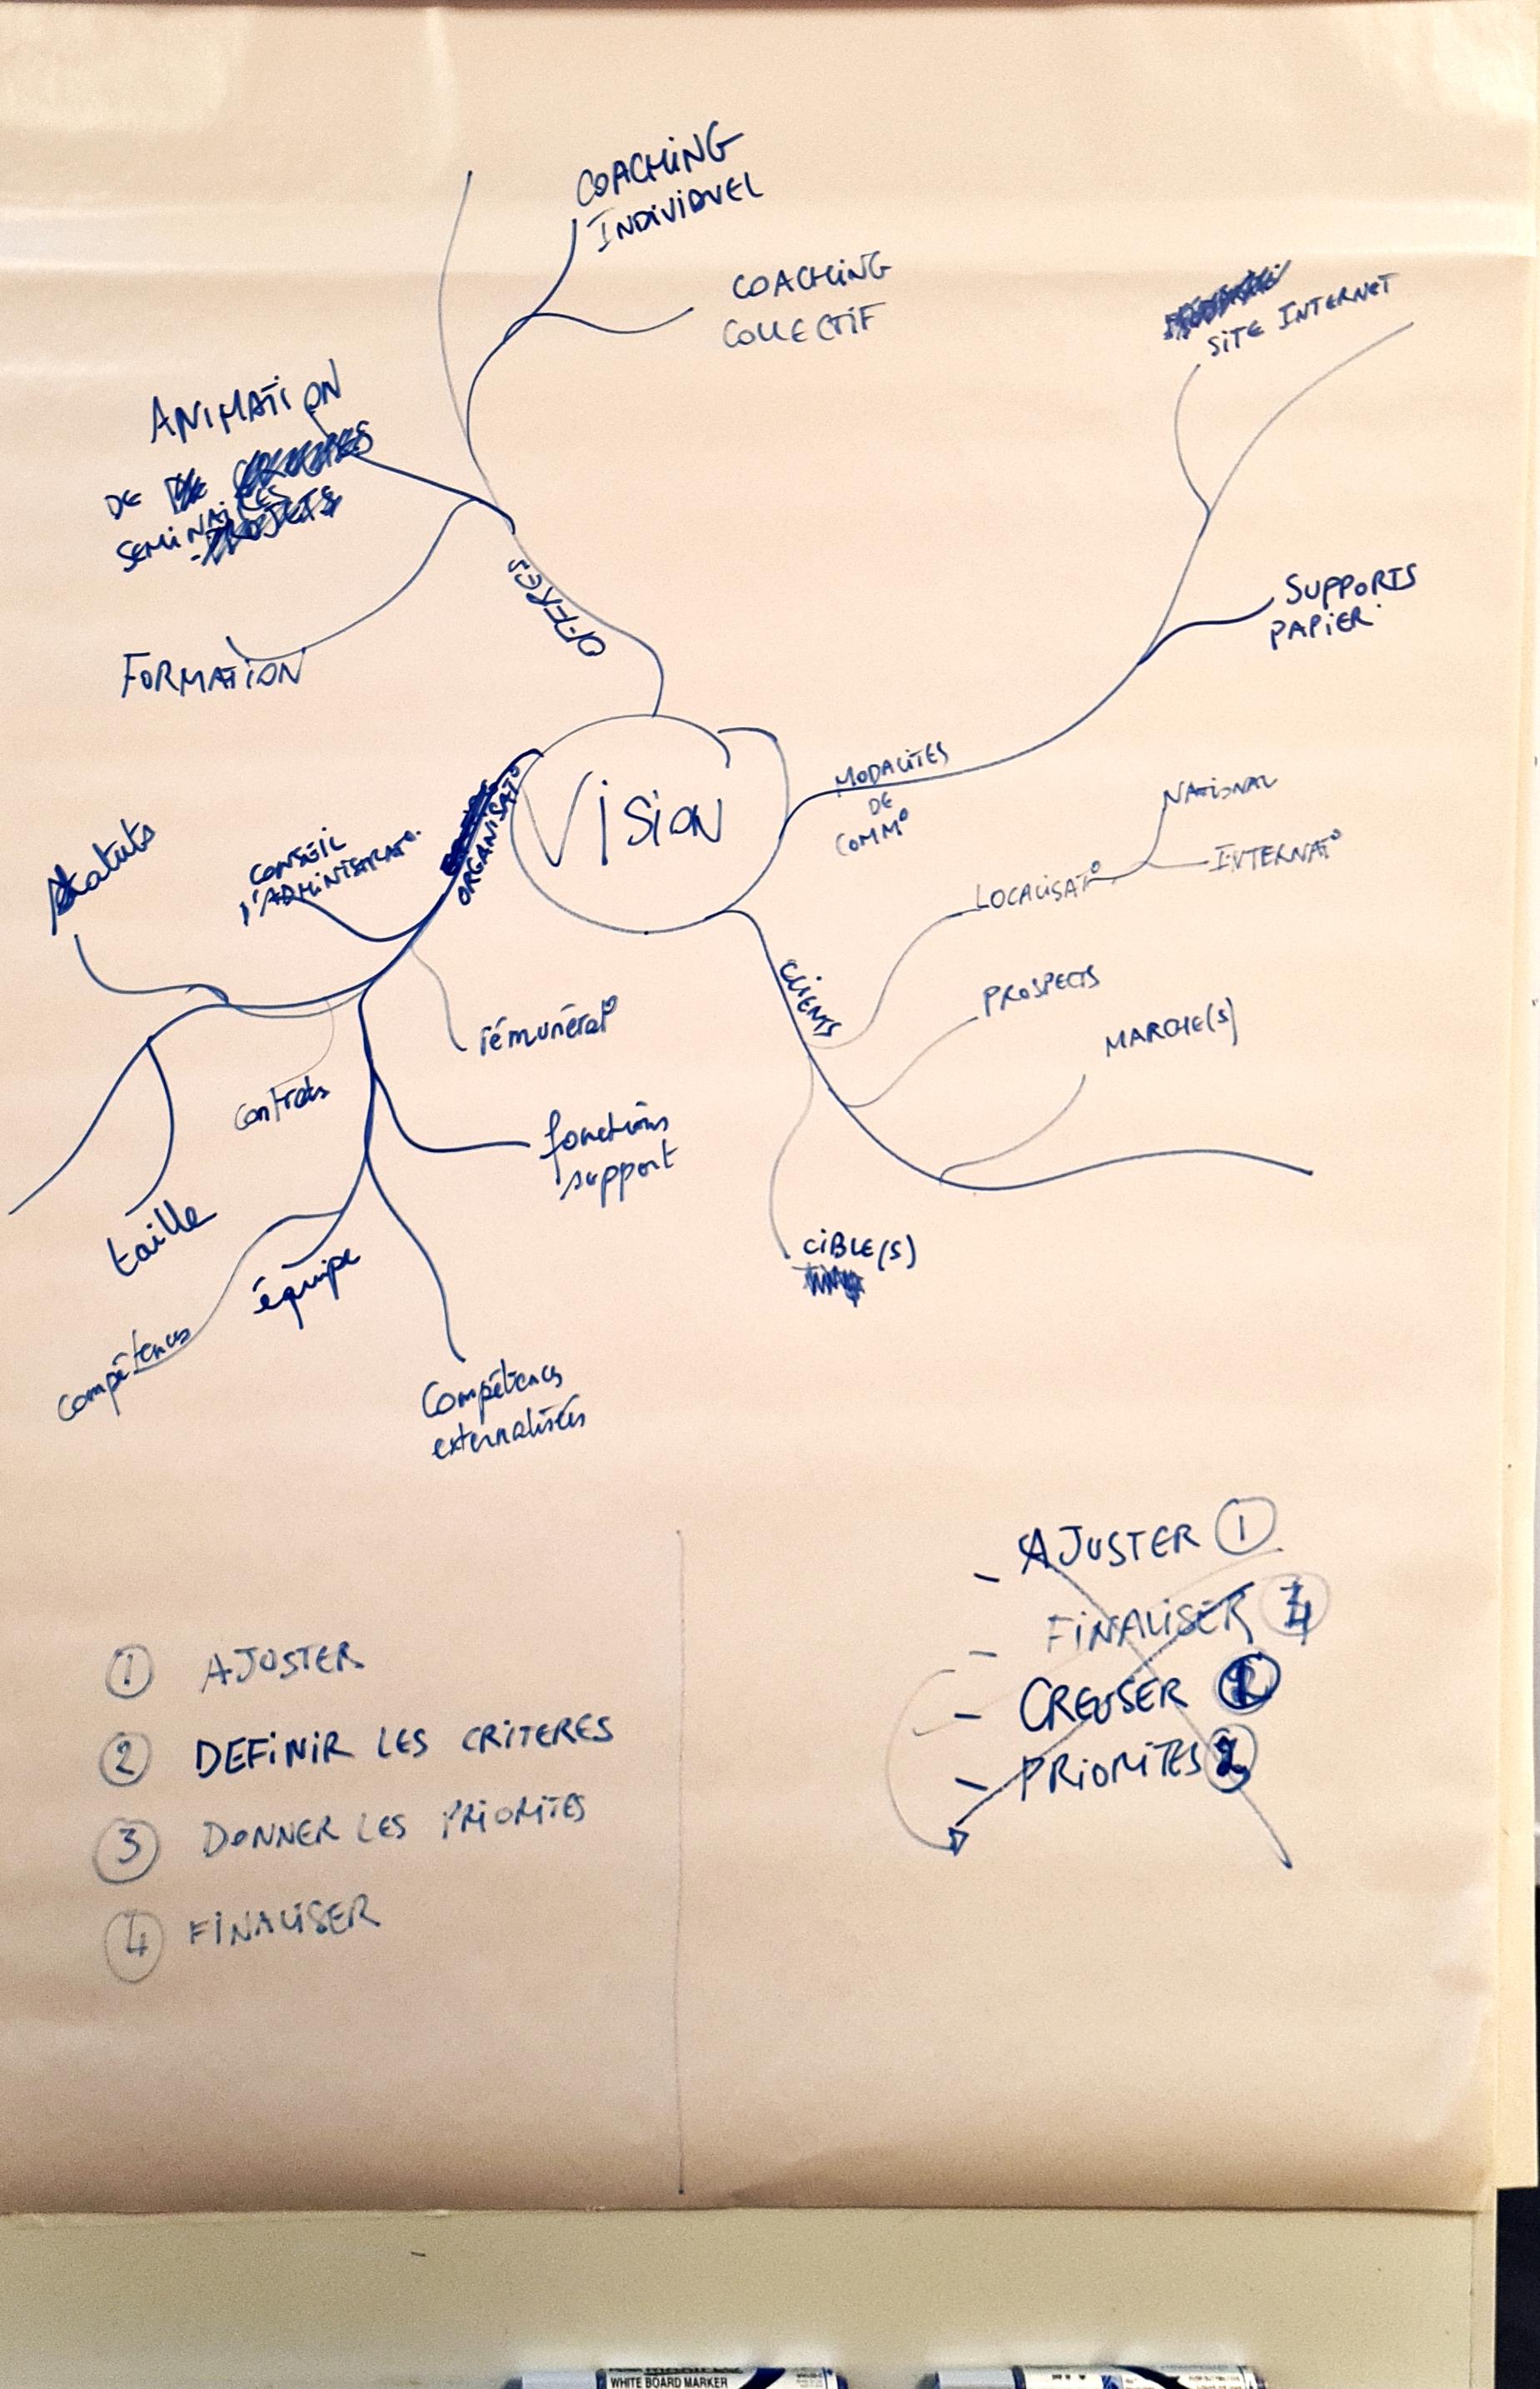 COACHiNG
INDiViDUEL
COACHiNG
COLLECTiF
SiTE INTERNET
ANIMATiON
DE
SEMiNAiRES
FORMATiON
OFFRES
SUPPORTS
PAPiER
ViSiON
MODALiTES
DE
COMM°
NATiONAL
INTERNAT°
LOCALiSAT°
ORGANiSAT°
CONSEiL
D'ADMiNiSTRAT°
Statuts
CLiENTS
PROSPECTS
MARCHE(S)
rémunérat°
contrats
fonctions
support
taille
équipe
CiBLE(S)
compétences
Compétences
externalisées
- AJUSTER 1
- FiNALiSER 4
- CREUSER
- PRiORiTES 2
1 AJUSTER
2 DEFiNiR LES CRiTERES
3 DONNER LES PRiORiTES
4 FiNALiSER
WHITE BOARD MARKER